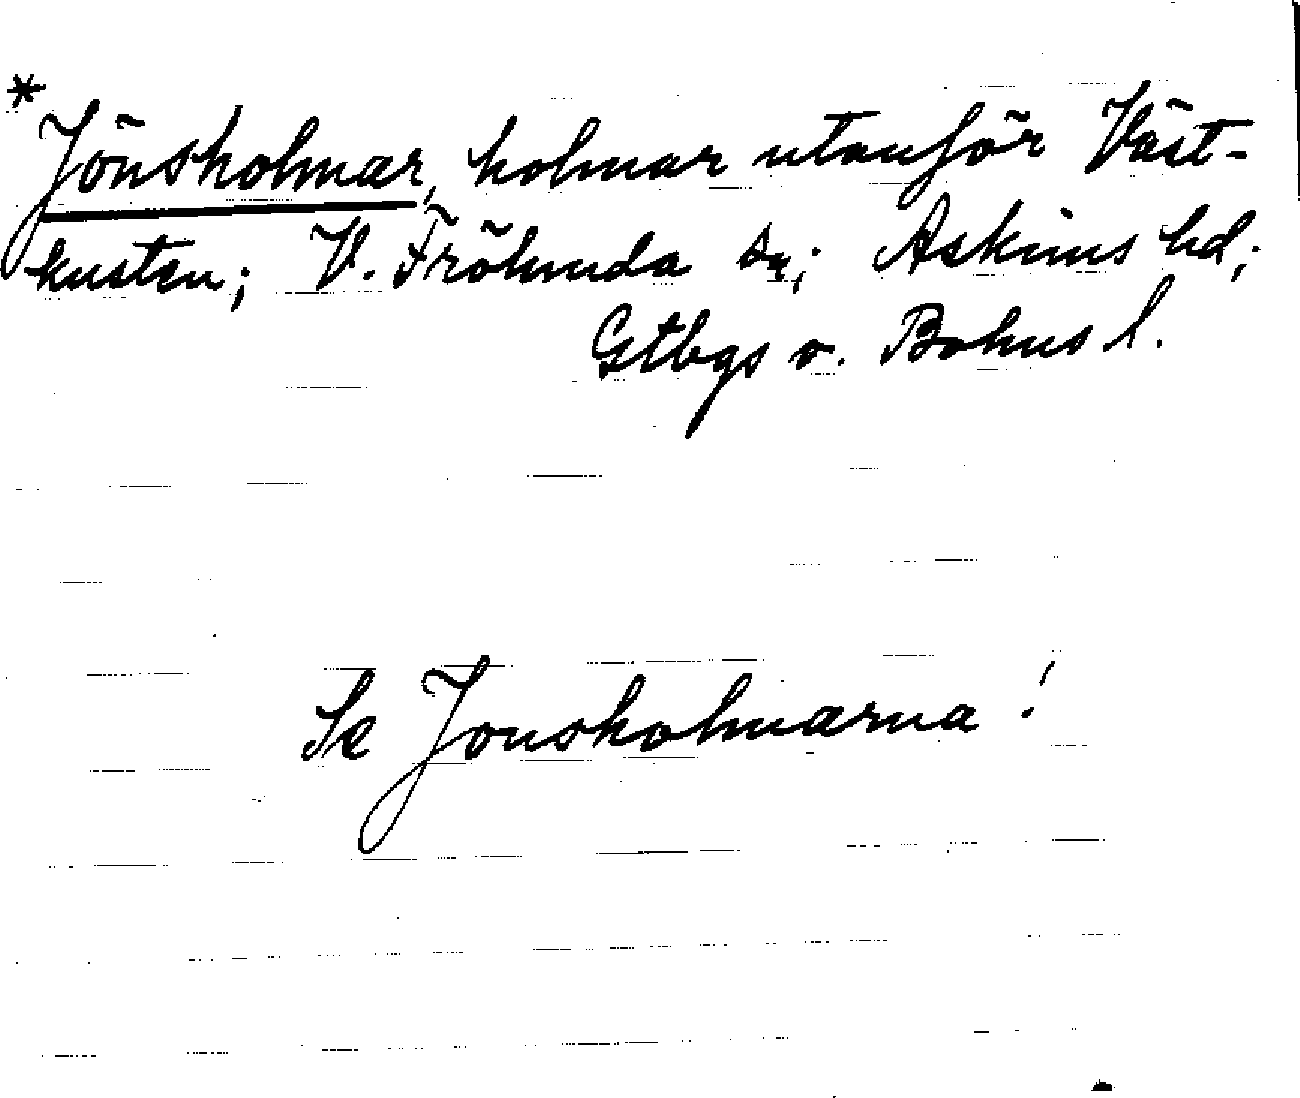 * Jönsholmar, holmar utanför Väst-
kusten; V. Frölunda sn; Askims hd;
Gtbgs o. Bohus l.
Se Jonsholmarna!